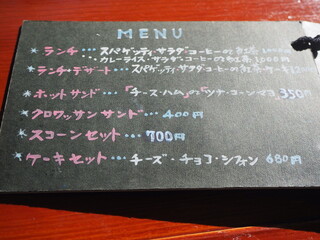 MENU
＊ランチ・・・スパゲッティ・サラダ・コーヒーor紅茶 1000円
・カレーライス・サラダ・コーヒーor紅茶 1000円
＊ランチ・デザート・・・スパゲッティ・サラダ・コーヒーor紅茶・ケーキ
＊ホットサンド・・・「チーズ・ハム」or「ツナ・コーン・マヨ」350円
＊クロワッサンサンド・・・400円
＊スコーンセット・・・700円
＊ケーキセット・・・チーズ・チョコ・シフォン 680円